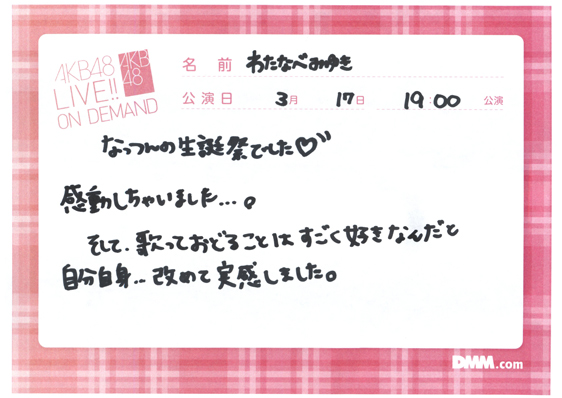 AKB48
LIVE!!
ON DEMAND
AKB
48
名 前 わたなべみゆき
公演日 3月 17日 19:00 公演
なっつんの生誕祭でした♡
感動しちゃいました...。
そして、歌っておどることはすごく好きなんだと
自分自身...改めて実感しました。
DMM.com